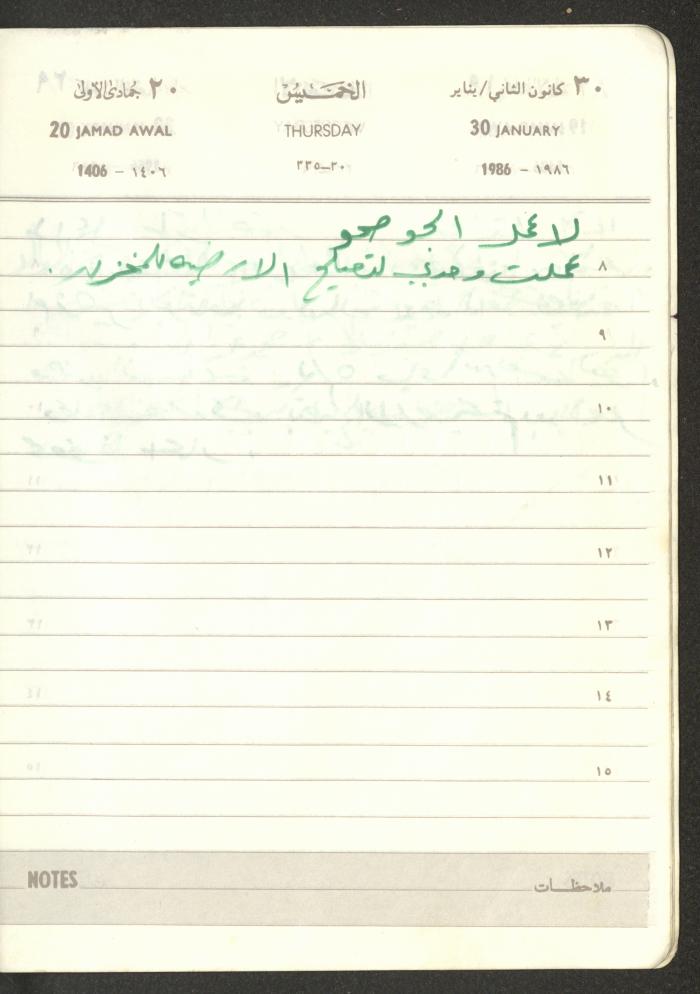 ٣٠ كانون الثاني/يناير الخميس ٢٠ جمادى الأولى
30 JANUARY THURSDAY 20 JAMAD AWAL
1986 - ١٩٨٦ ٣٠-٣٣٥ 1406 - ١٤٠٦
لا عمل الجو صحو
٨ عملت وحدي لتصليح الارضيه للمخزن.
٩
١٠
١١
١٢
١٣
١٤
١٥
ملاحظات NOTES